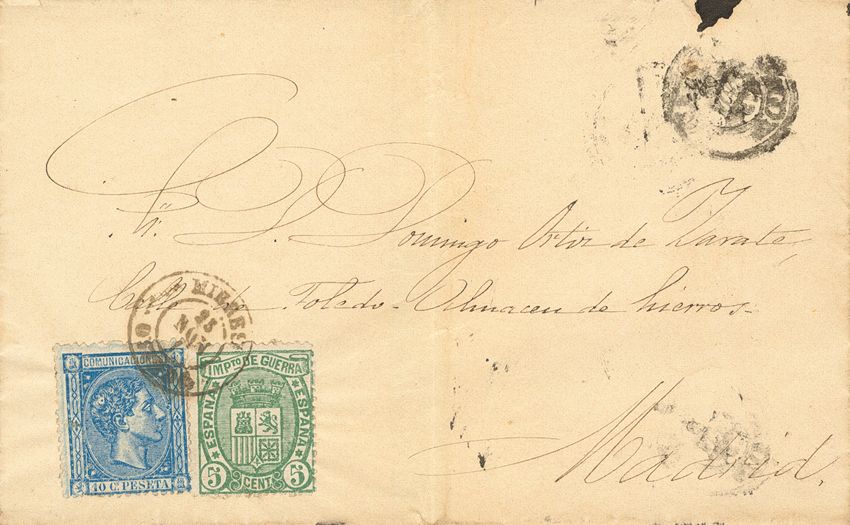 Sr. D. Domingo Ortiz de Zarate,
Calle de Toledo - Almacen de hierros -
Madrid.
MIERES
25
NOV
COMUNICACIONES
10 C. PESETA
IMPTO DE GUERRA
ESPAÑA
ESPAÑA
5 CENT 5